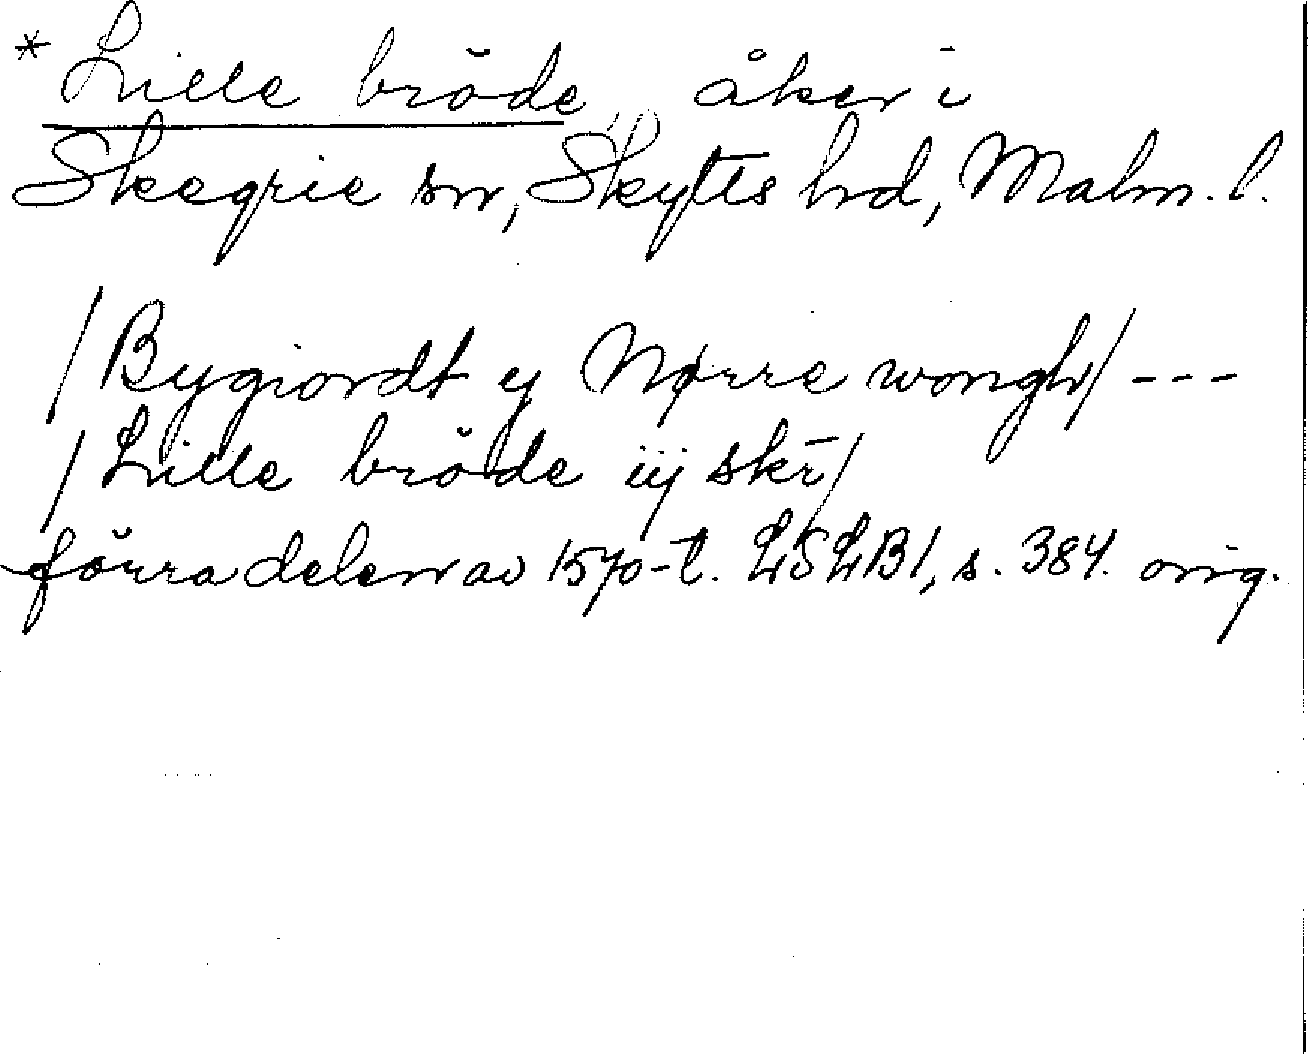 * Lille bröde, åker i
Skegrie sn, Skytts hd, Malm. l.
/Bygiordt y Nørre wongh/ ---
/Lille bröde iij skr/
förra delen av 1570-t. LSLB1, s. 384. orig.